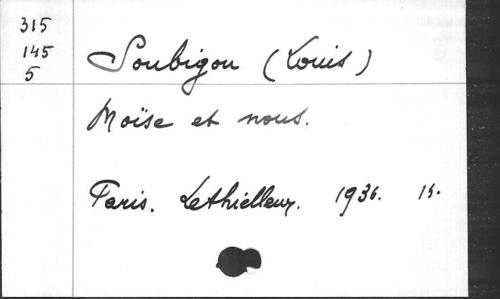 315
145
5
Soubigou (Louis)
Moïse et nous.
Paris. Lethielleux. 1936.